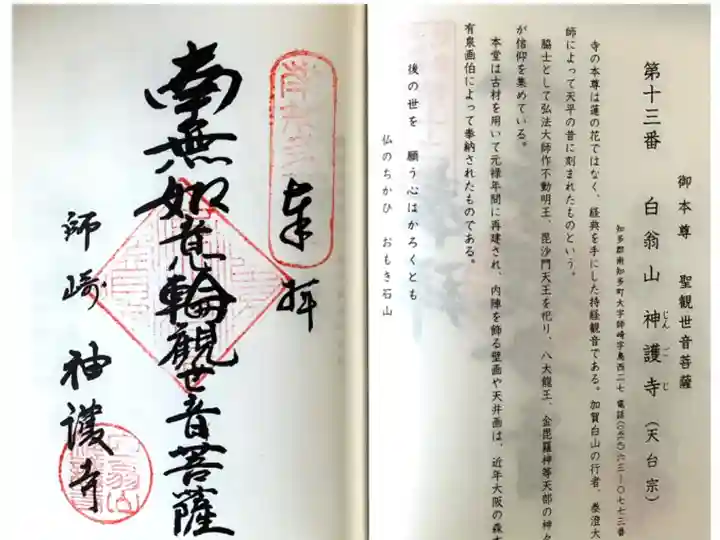 御本尊　聖観世音菩薩
第十三番　白翁山　神護寺（天台宗）
じんごじ
知多郡南知多町大字師崎字鳥西二七　電話（〇五六九）六三ー〇七七三番
寺の本尊は蓮の花ではなく、経典を手にした持経観音である。加賀白山の行者、泰澄大
師によって天平の昔に刻まれたものという。
脇士として弘法大師作不動明王、毘沙門天王を祀り、八大龍王、金毘羅神等天部の神々
が信仰を集めている。
本堂は古材を用いて元禄年間に再建され、内陣を飾る壁画や天井画は、近年大阪の森本
有泉画伯によって奉納されたものである。
後の世を　願う心はかろくとも
仏のちかひ　おもき石山
奉拝
南無如意輪観世音菩薩
師崎　神護寺